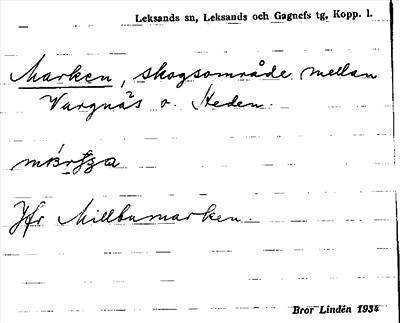 Leksands sn, Leksands och Gagnefs tg, Kopp. l.
Marken, skogsområde mellan
Vargnäs o. Heden.
Jfr Millbumarken.
Bror Lindén 1934